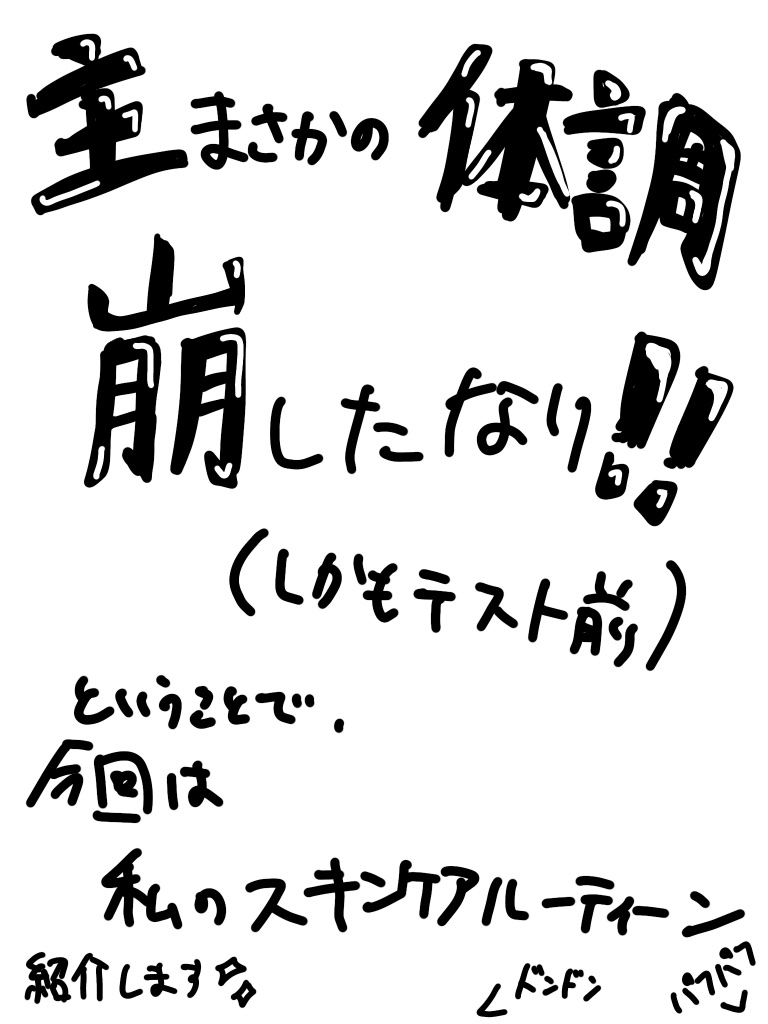 主まさかの体調
崩したなり!!
(しかもテスト前)
ということで.
今回は
私のスキンケアルーティーン
紹介します
ドンドン
パフパフ